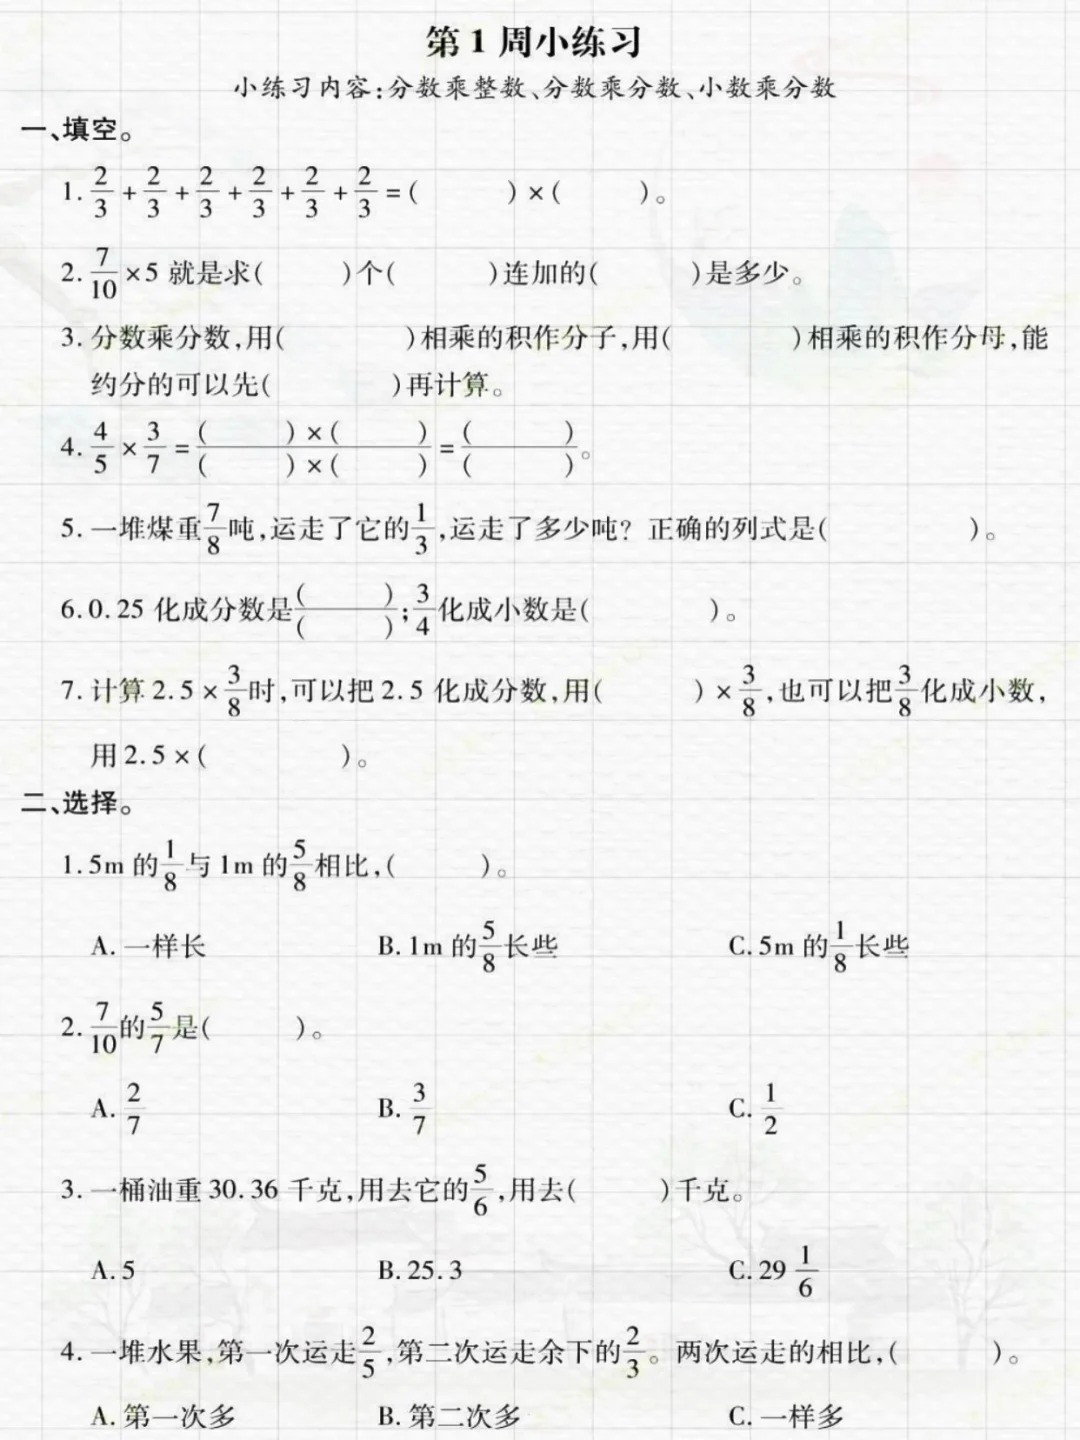 第1周小练习
小练习内容:分数乘整数、分数乘分数、小数乘分数
一、填空。
1. 2/3 + 2/3 + 2/3 + 2/3 + 2/3 + 2/3 = (  ) × (  )。
2. 7/10 × 5 就是求(  )个(  )连加的(  )是多少。
3. 分数乘分数,用(  )相乘的积作分子,用(  )相乘的积作分母,能
约分的可以先(  )再计算。
4. 4/5 × 3/7 = (  ) × (  ) / (  ) × (  ) = (  ) / (  )。
5. 一堆煤重 7/8 吨,运走了它的 1/3,运走了多少吨? 正确的列式是(  )。
6. 0.25 化成分数是 (  ) / (  ); 3/4 化成小数是(  )。
7. 计算 2.5 × 3/8 时,可以把 2.5 化成分数,用(  ) × 3/8,也可以把 3/8 化成小数,
用 2.5 × (  )。
二、选择。
1. 5m 的 1/8 与 1m 的 5/8 相比,(  )。
A. 一样长 B. 1m 的 5/8 长些 C. 5m 的 1/8 长些
2. 7/10 的 5/7 是(  )。
A. 2/7 B. 3/7 C. 1/2
3. 一桶油重 30.36 千克,用去它的 5/6,用去(  )千克。
A. 5 B. 25.3 C. 29 1/6
4. 一堆水果,第一次运走 2/5,第二次运走余下的 2/3。两次运走的相比,(  )。
A. 第一次多 B. 第二次多 C. 一样多